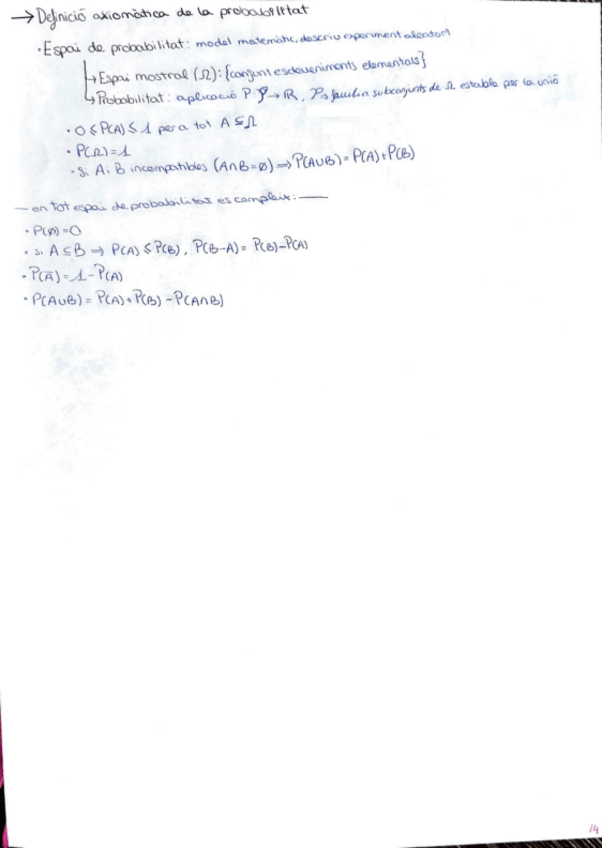 → Definició axiomàtica de la probabilitat
· Espai de probabilitat: model matemàtic, descriu experiment aleatori
↳ Espai mostral (Ω): {conjunt esdeveniments elementals}
↳ Probabilitat: aplicació P: 𝒫 → ℝ, 𝒫 → família subconjunts de Ω estable per la unió
· 0 ≤ P(A) ≤ 1 per a tot A ⊆ Ω
· P(Ω) = 1
· Si A i B incompatibles (A∩B=∅) ⟹ P(A∪B) = P(A) + P(B)
— en tot espai de probabilitat es compleix: —
· P(∅) = 0
· si A ⊆ B ⟹ P(A) ≤ P(B), P(B-A) = P(B) - P(A)
· P(Ā) = 1 - P(A)
· P(A∪B) = P(A) + P(B) - P(A∩B)
14